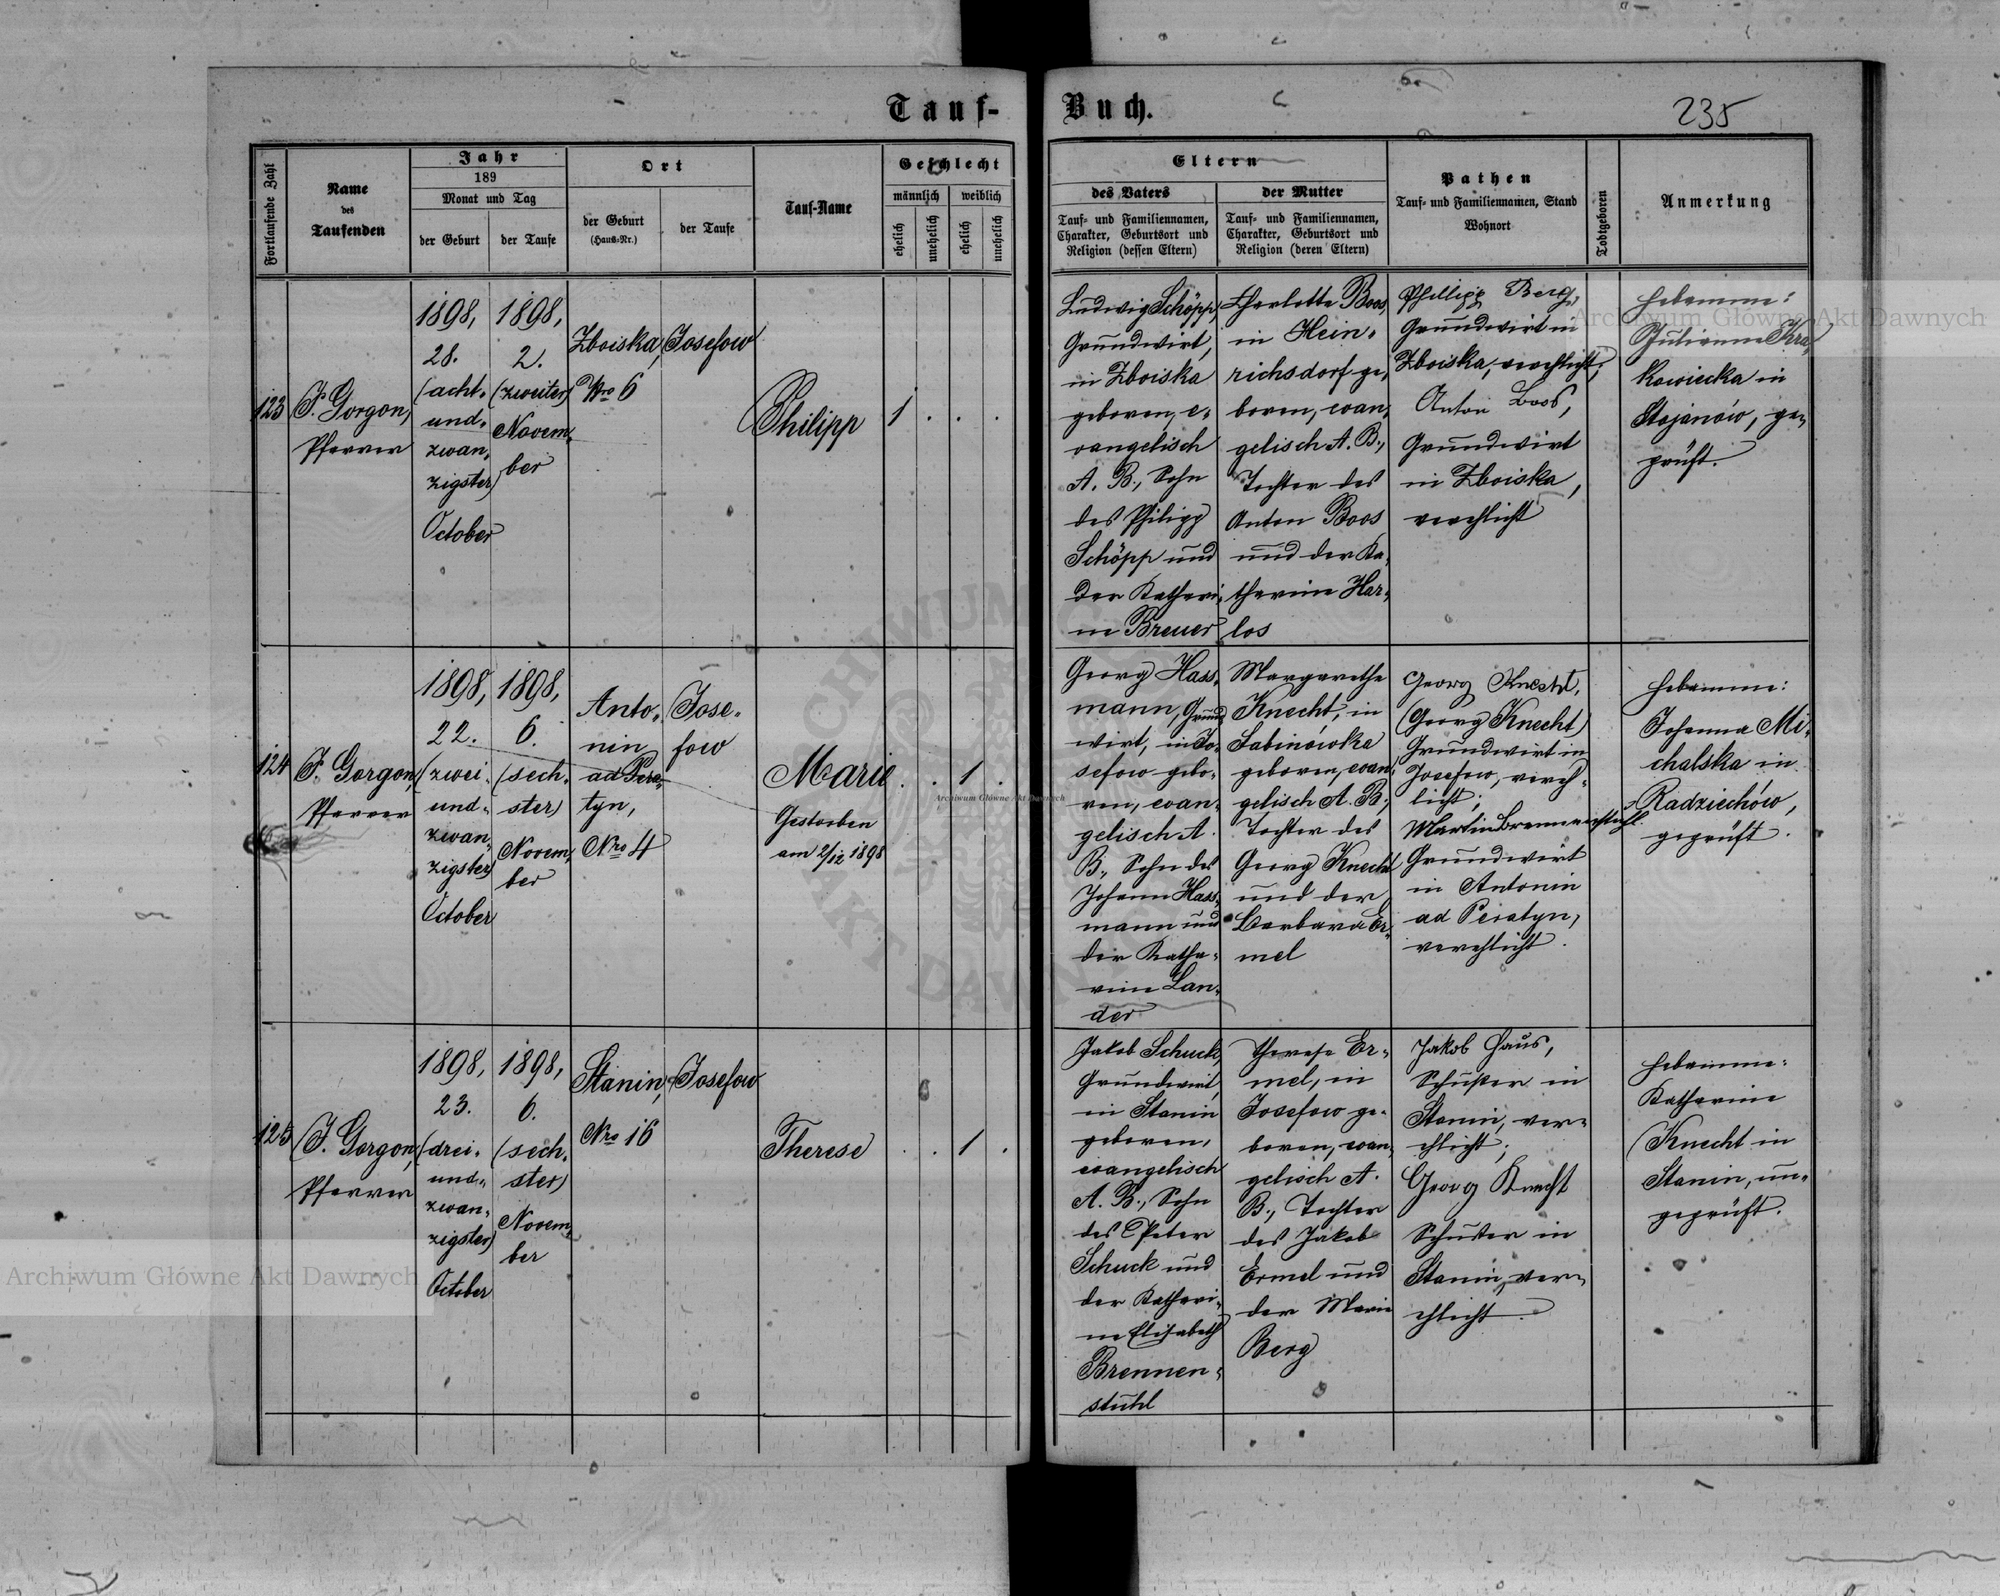 Tauf-Buch.
235
Fortlaufende Zahl
Name
des
Taufenden
Jahr
189
Monat und Tag
der Geburt
der Taufe
Ort
der Geburt
(Haus-Nr.)
der Taufe
Tauf-Name
Geschlecht
männlich
weiblich
ehelich
unehelich
ehelich
unehelich
Eltern
des Vaters
Tauf- und Familiennamen,
Charakter, Geburtsort und
Religion (dessen Eltern)
der Mutter
Tauf- und Familiennamen,
Charakter, Geburtsort und
Religion (deren Eltern)
Pathen
Tauf- und Familiennamen, Stand
Wohnort
Todtgeboren
Anmerkung
123
J. Gorgon,
Pfarrer
1898,
28.
(acht-
und-
zwan-
zigster)
October
1898,
2.
(zweiter)
Novem-
ber
Zboiska,
Nro 6
Josefow
Philipp
1 . . .
Ludwig Schöpp,
Grundwirt,
in Zboiska
geboren, e-
vangelisch
A. B., Sohn
des Philipp
Schöpp und
der Kathari-
ne Breuer
Charlotte Boos,
in Hein-
richsdorf ge-
boren, evan-
gelisch A. B.,
Tochter des
Anton Boos
und der Ka-
tharina Har-
los
Phillipp Berg,
Grundwirt in
Zboiska, verehlicht;
Anton Boos,
Grundwirt
in Zboiska,
verehlicht
Hebamme:
Julianna Kra-
kowiecka in
Stojanów, ge-
prüft.
124
J. Gorgon,
Pfarrer
1898,
22.
(zwei-
und-
zwan-
zigster)
October
1898,
6.
(sech-
ster)
Novem-
ber
Anto-
nin
ad Pera-
tyn,
Nro 4
Jose-
fow
Marie
Gestorben
am 2/12 1898
. . 1 .
Georg Hass-
mann, Grund-
wirt, in Jo-
sefow gebo-
ren, evan-
gelisch A.
B., Sohn des
Johann Hass-
mann und
der Katha-
rine Lan-
der
Margarethe
Knecht, in
Sabinówka
geboren, evan-
gelisch A. B.,
Tochter des
Georg Knecht
und der
Barbara Er-
mel
Georg Knecht,
(Georg Knecht)
Grundwirt in
Josefow, vereh-
licht;
Martin Brennenstuhl
Grundwirt
in Antonin
ad Peratyn,
verehlicht.
Hebamme:
Johanna Mi-
chalska in
Radziechów,
geprüft.
125
J. Gorgon,
Pfarrer
1898,
23.
(drei-
und-
zwan-
zigster)
October
1898,
6.
(sech-
ster)
Novem-
ber
Stanin,
Nro 16
Josefow
Therese
. . 1 .
Jakob Schuck,
Grundwirt,
in Stanin
geboren,
evangelisch
A. B., Sohn
des Peter
Schuck und
der Kathari-
ne Elisabeth
Brennen-
stuhl
Therese Er-
mel, in
Josefow ge-
boren, evan-
gelisch A.
B., Tochter
des Jakob
Ermel und
der Marie
Berg
Jakob Haus,
Schuster in
Stanin, ver-
ehlicht;
Georg Knecht
Schuster in
Stanin, ver-
ehlicht.
Hebamme:
Katharine
Knecht in
Stanin, un-
geprüft.
Archiwum Główne Akt Dawnych
Archiwum Główne Akt Dawnych
Archiwum Główne Akt Dawnych
ARCHIWUM
AKT DAWN